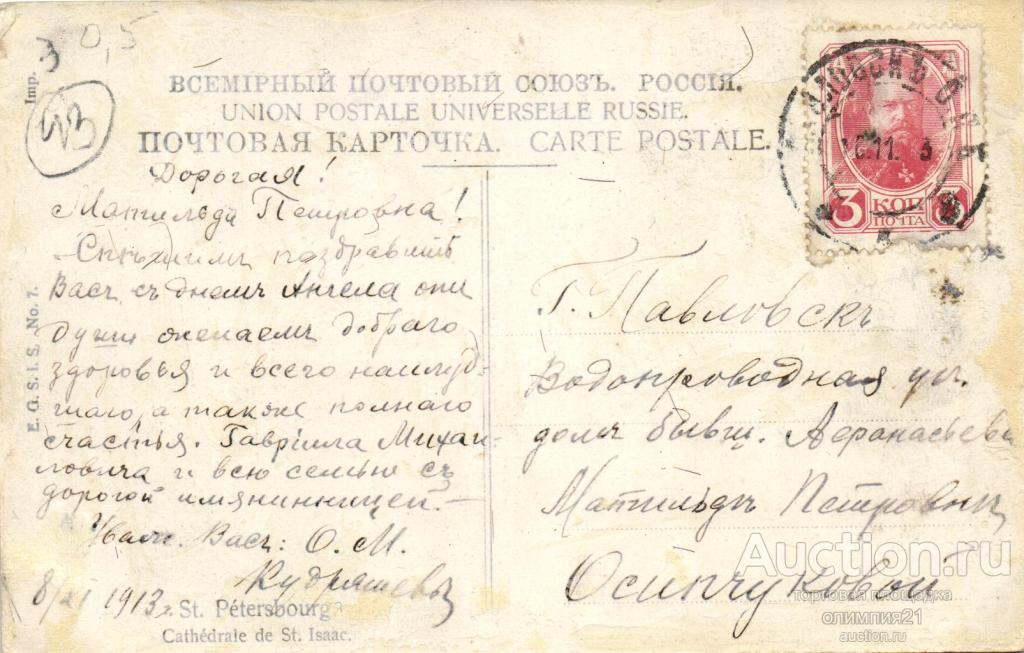 3 0,5
Imp.
43
ВСЕМІРНЫЙ ПОЧТОВЫЙ СОЮЗЪ. РОССІЯ.
UNION POSTALE UNIVERSELLE RUSSIE.
ПОЧТОВАЯ КАРТОЧКА. CARTE POSTALE.
3 КОП 3
ПОЧТА
Дорогая!
Матильда Петровна!
Спѣшимъ поздравить
Васъ съ днемъ Ангела отъ
души желаемъ добраго
здоровья и всего наилуч-
шаго, а также полнаго
счастья. Гавріила Михаи-
ловича и всю семью съ
дорогой имянинницей.—
Уваж. Васъ: О. М.
Кудряшевъ
8/XI 1913 г.
St. Pétersbourg
Cathédrale de St. Isaac.
E. G. S. i. S. No. 7.
Г. Павловскъ
Водопроводная ул.
домъ бывш. Афанасьева
Матильдѣ Петровнѣ
Осипчуковой
Auction.ru
торговая площадка
олимпия21
auction.ru